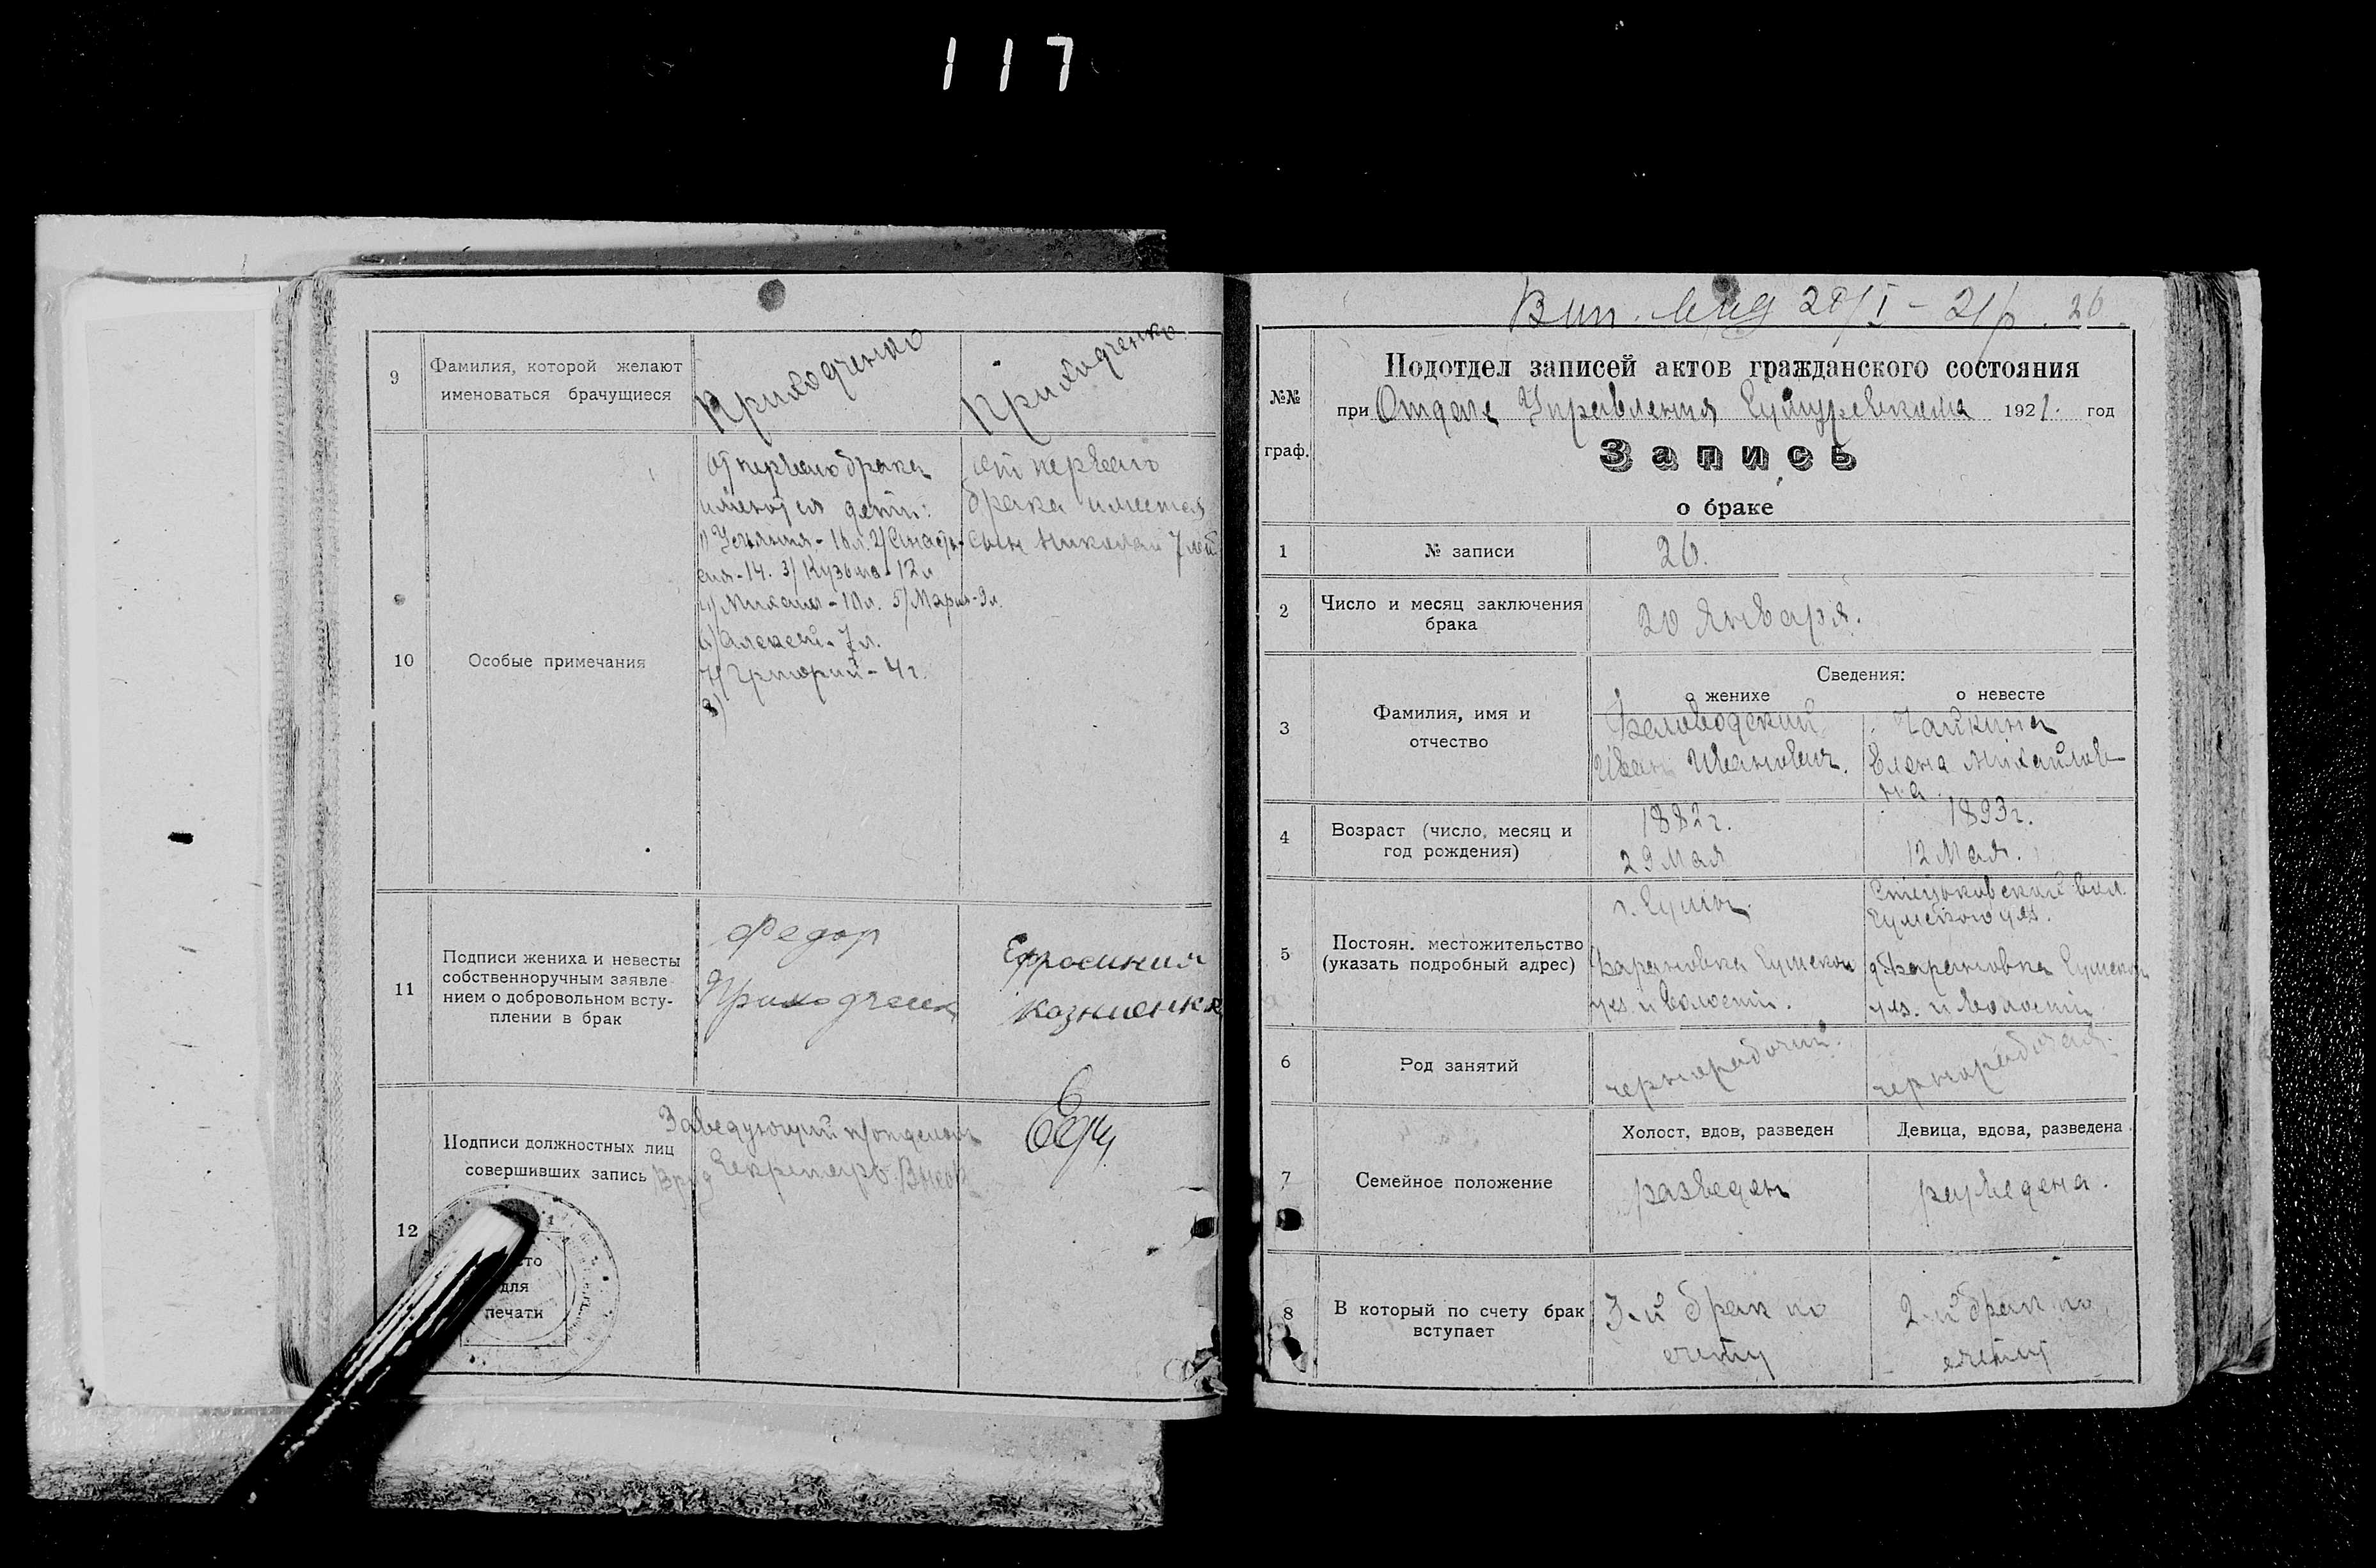 117
9
Фамилия, которой желают
именоваться брачущиеся
Приходченко
Приходченко
10
Особые примечания
От первого брака
имеются дети:
1) - 16 л. 2) Анаста-
сия - 14. 3) Кузьма - 12 л
4) Михаил - 10 л. 5) Мария - 9 л.
6) Алексей - 7 л.
7) Григорий - 4 г.
8)
от первого
брака имеется
сын Николай 7 лет
11
Подписи жениха и невесты
собственноручным заявле-
нием о добровольном всту-
плении в брак
Федор
Приходченко
Ефросиния
12
Подписи должностных лиц
совершивших запись
Заведующий п/отделом
Секретарь
для
печати
20/I - 21 26
№№
граф.
Подотдел записей актов гражданского состояния
при Отделе Управления 1921. год
Запись
о браке
1
№ записи
26.
2
Число и месяц заключения
брака
20 Января.
3
Фамилия, имя и
отчество
Сведения:
о женихе
о невесте
Беловодский
Иван Иванович.
Чайкина
Елена Михайлов
на.
4
Возраст (число, месяц и
год рождения)
1882 г.
29 Мая
1893 г.
12 Мая.
5
Постоян. местожительство
(указать подробный адрес)
г. Сумы.
Барановка Сумской
уез. и волости.
Стецьковской вол.
Сумского уез.
д. Барановка Сумской
уез. и волости
6
Род занятий
чернорабочий.
чернорабочая.
7
Семейное положение
Холост, вдов, разведен
Девица, вдова, разведена
разведен
разведена.
8
В который по счету брак
вступает
3-й брак по
счету
2-й брак по
счету